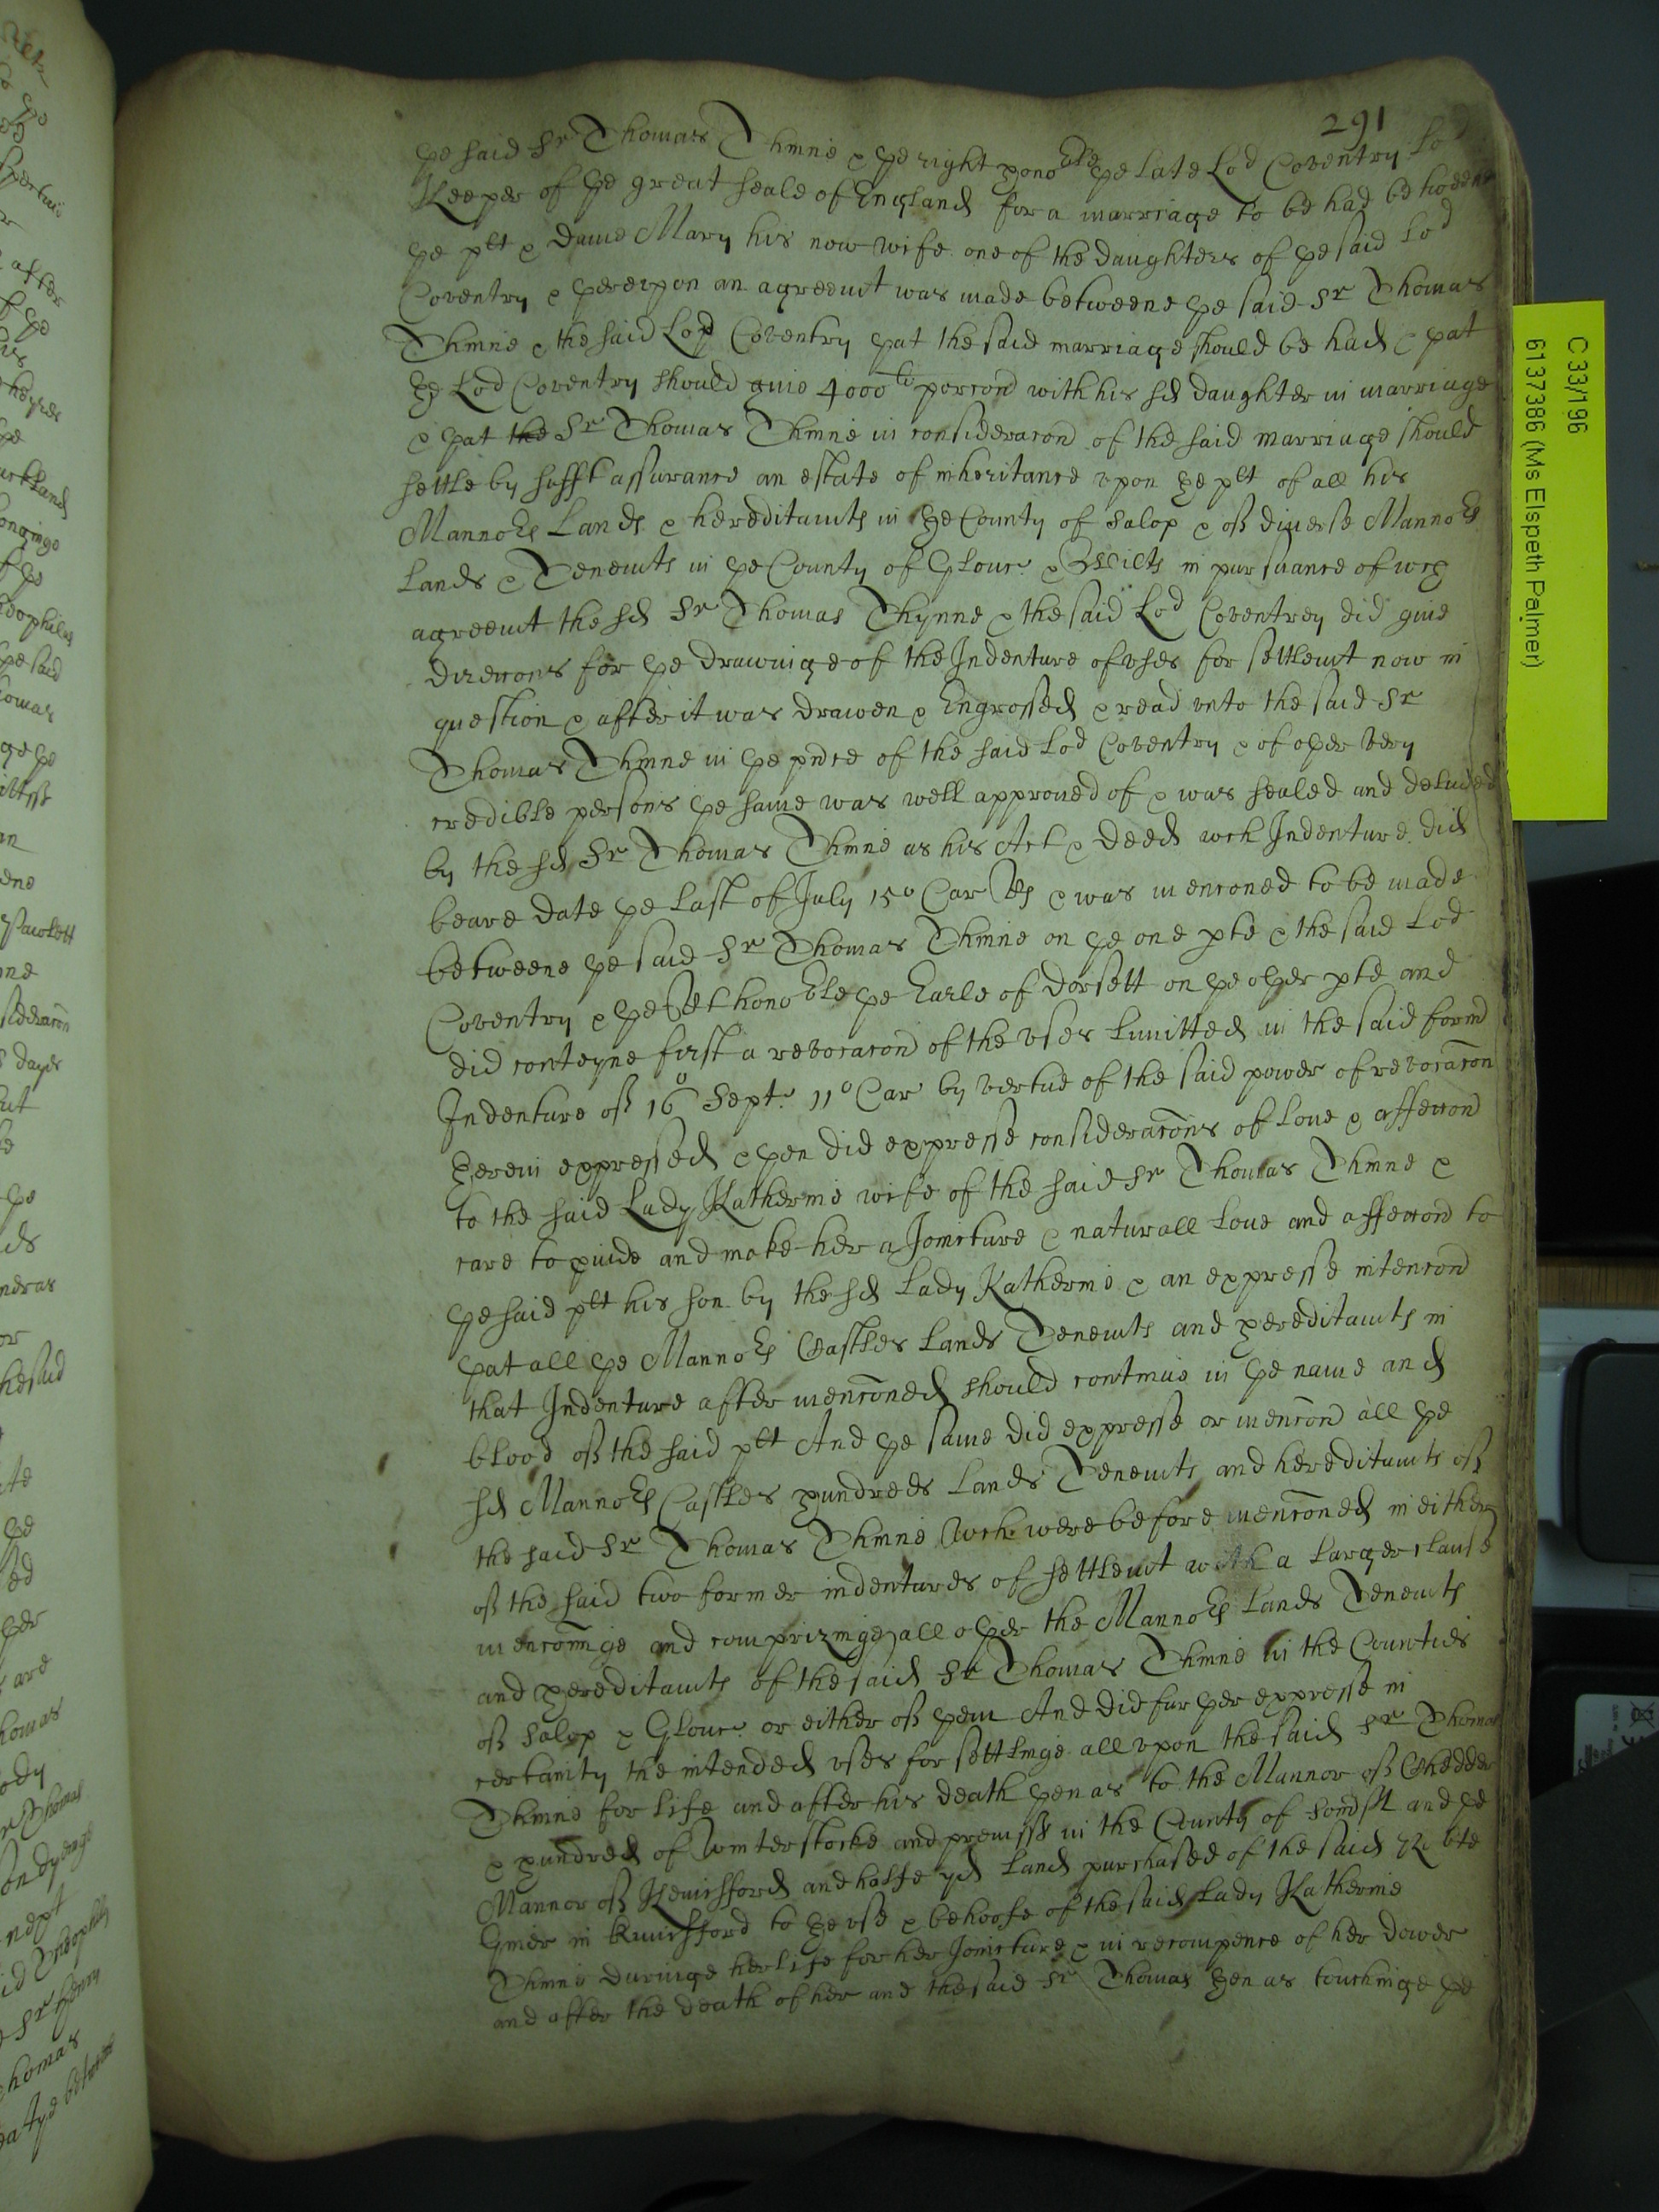 291
ye said Sr Thomas Thinne & ye right hono:ble ye late Lod Coventry Lod
Keeper of ye great seale of England for a marriage to be had betweene
ye plt & Dame Mary his now wife one of the daughters of ye said Lod
Coventry & yerevpon an agreemt was made betweene ye said Sr Thomas
Thinne & the said Lod Coventry yat the said marriage should be had & yat
ye Lod Coventry should giue 4000li porcon with his sd daughter in marriage
& yat the Sr Thomas Thinne in consideracon of the said marriage should
settle by sufft assurance an estate of inheritance vpon ye plt of all his
Manno:rs Lands & hereditamts in ye County of Salop & of diuerse Manno:rs
Lands & Tenemts in ye County of Glouc: & Wilts in pursuance of wch
agreemt the sd Sr Thomas Thynne & the said Lod Coventrey did giue
direcons for ye drawinge of the Indenture of vses for settlemt now in
question & after it was drawen & Engrossed & read vnto the said Sr
Thomas Thinne in ye pnce of the said Lod Coventry & of oyer very
credible persons ye same was well approued of & was sealed and deliuered
by the sd Sr Thomas Thinne as his Act & Deed wch Indenture did
beare date ye last of July 15o Car Rs & was menconed to be made
betweene ye said Sr Thomas Thinne on ye one pte & the said Lod
Coventry & ye Rt honoble ye Earle of Dorsett on ye oyer pte and
did conteyne first a revocacon of the vses limitted in the said form
Indenture of 16o Sept: 11o Car by vertue of the said power of revocacon
yerein expressed & yen did expresse consideracons of loue & affeccon
to the said Lady Katherine wife of the said Sr Thomas Thinne &
care to puide and make her a Joincture & naturall loue and affeccon to
ye said plt his son by the sd Lady Katherine & an expresse intencon
yat all ye Manno:rs Castles Lands Tenemts and hereditamts in
that Indenture after menconed should continue in ye name and
blood of the said plt And ye same did expresse or mencon all ye
sd Manno:rs Castles hundreds Lands Tenemts and hereditamts of
the said Sr Thomas Thinne Wch were before menconed in either
of the said two former indentures of settlemt with a larger clause
menconinge and comprizinge all oyer the Manno:rs Lands Tenemts
and hereditamts of the said Sr Thomas Thinne in the Counties
of Salop & Glouc: or either of yem And did furyer expresse in
certainty the intended vses for settlinge all vpon the said Sr Thomas
Thinne for life and after his death yen as to the Mannor of Chedder
& hundred of Winterstocke and premisss in the County of Somsst and ye
Mannor of Kempsford and halfe yd land purchased of the said Robte
Iner in Kempsford to ye vse & behoofe of the said Lady Katherine
Thinne duringe her life for her Joincture & in recompence of her dower
and after the death of her and the said Sr Thomas yen as touchinge ye
C 33/196
6137386 (Ms Elspeth Palmer)